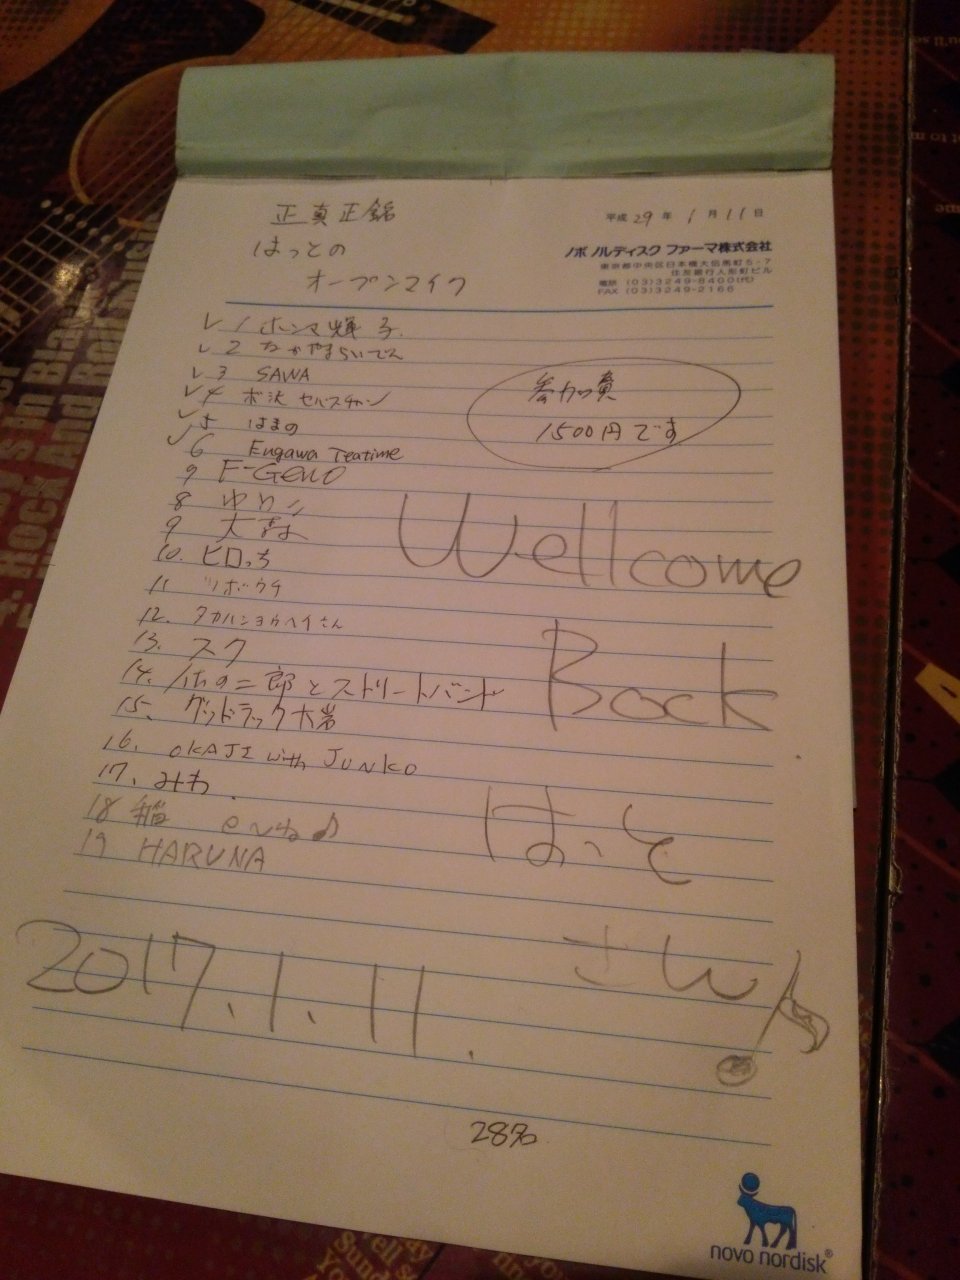 正真正銘
はっとの
オープンマイク
平成 29 年 1 月 11 日
ノボ ノルディスク ファーマ株式会社
東京都中央区日本橋大伝馬町5-7
住友銀行人形町ビル
電話 (03)3249-8400(代)
FAX (03)3249-2166
1 ホンマ輝子
2 なかやまらいでん
3 SAWA
4 ボ沢 セバスチャン
5 はまの
6 Engawa Teatime
参加費
1500円です
9 F-GENO
8 ゆり
9 大森
10. ヒロっち
11 ツボウチ
12. タカハシヨウヘイさん
13. スク
14. ホの二郎とストリートバンド
15. グッドラック大岩
16. OKAJI with JUNKO
17. みわ
18 稲
19 HARUNA
Wellcome
Back
はっと
さん
2017.1.11.
28名
novo nordisk®